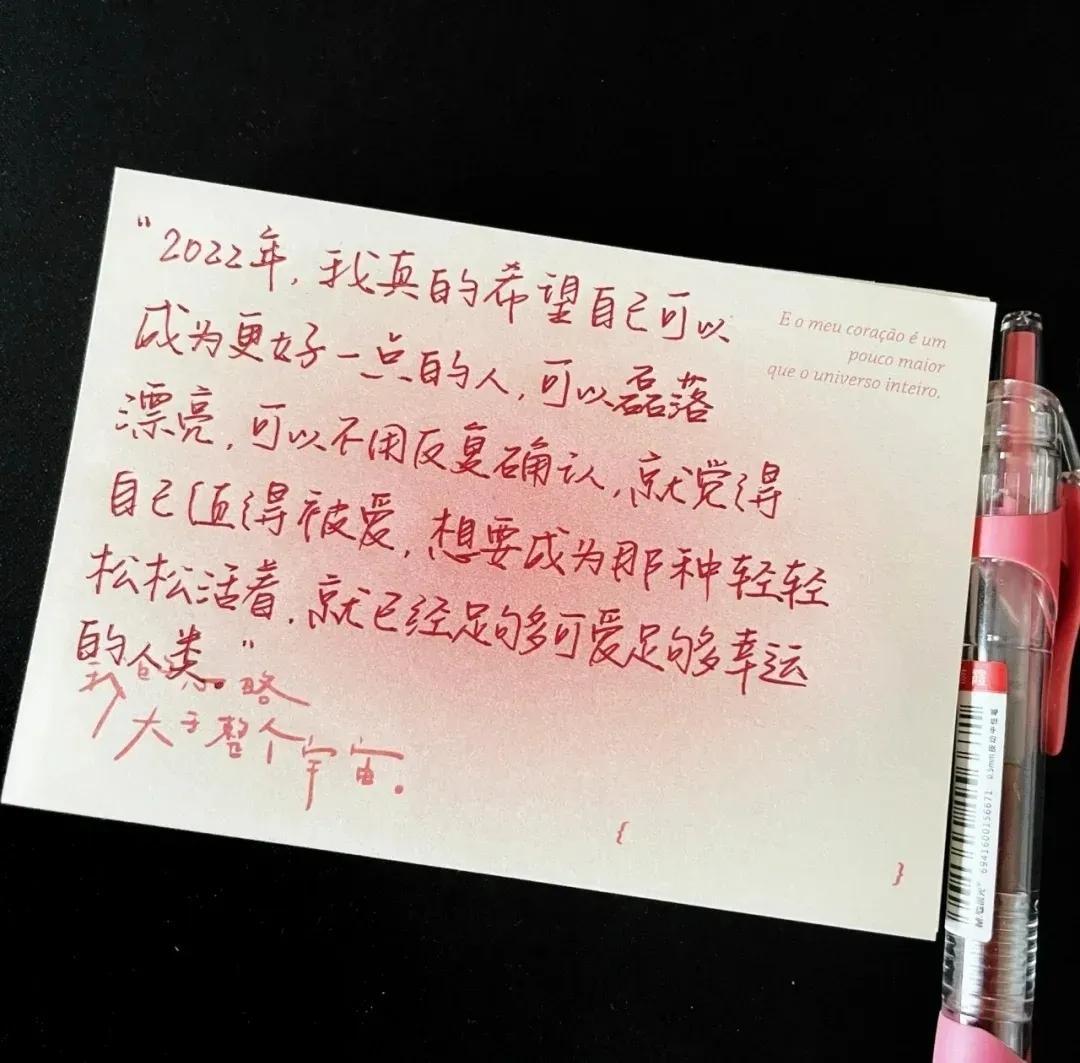 "2022年，我真的希望自己可以
成为更好一点的人，可以磊落
漂亮，可以不用反复确认，就觉得
自己值得被爱，想要成为那种轻轻
松松活着，就已经足够多可爱足够多幸运
的人类。"
我的心略
大于整个宇宙.
E o meu coração é um
pouco maior
que o universo inteiro.
{
}
0.5mm
6941600156671
M&G晨光